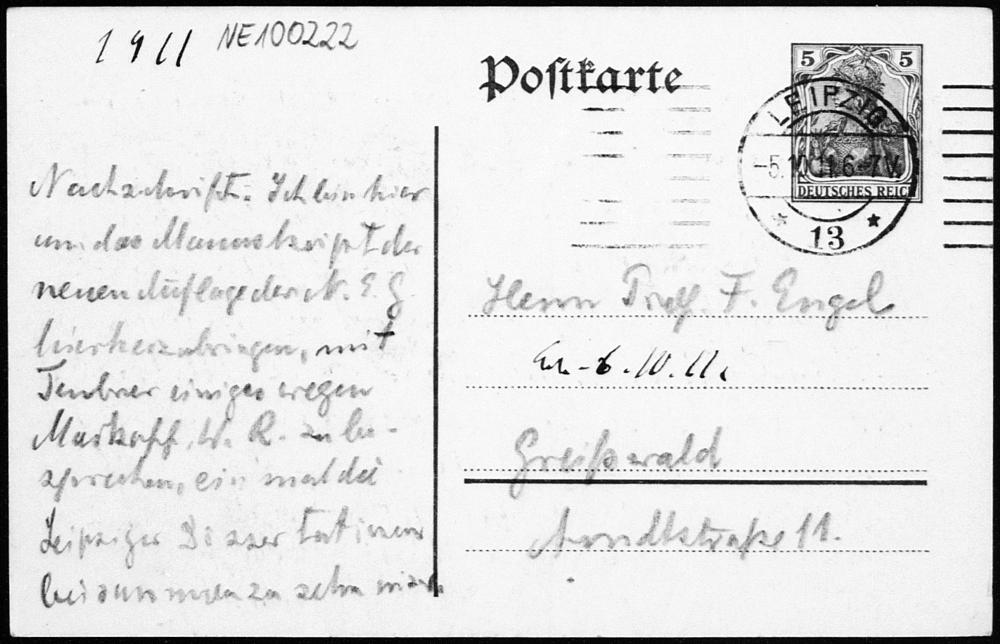 1911 NE100222
Postkarte
5 5
LEIPZIG
-5.10.11.6-7V.
DEUTSCHES REICH
* 13 *
Nachschrift. Ich bin hier
um das Manuskript der
neuen Auflage der N. E. G
hierherzubringen, mit
Teubner einiges wegen
W. R. zu be-
sprechen, ein mal die
Leipziger Dissertationen
beisammen zu sehn
Herrn Prof. F. Engel
6.10.11.
Greifswald
Arndtstraße 11.